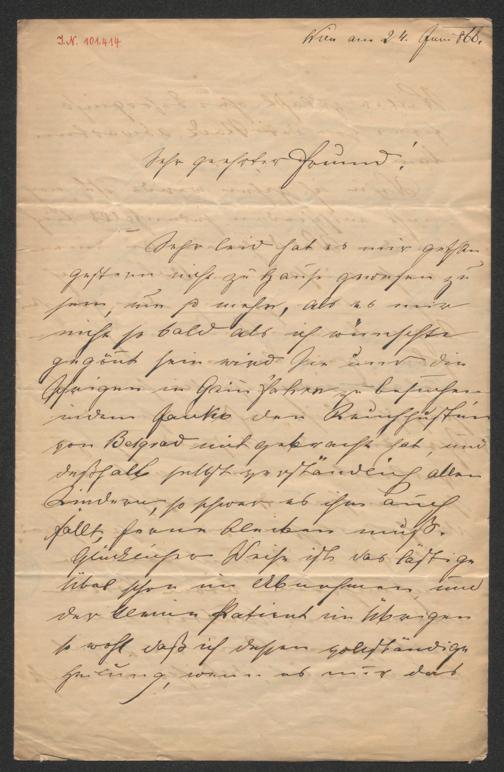 I.N. 101.414
Wien am 24. Juni 866.
Sehr geehrter Freund!
Sehr leid hat es mir gethan
gestern nicht zu Hause gewesen zu
sein, um so mehr, als es mir
nicht so bald als ich wünschte
gegönnt sein wird Sie und die
Ihrigen in zu besuchen
indem Janko den Keuchhusten
von Belgrad mitgebracht hat, und
deßhalb selbstverständlich allen
Kindern, so schwer es ihm auch
fällt, ferne bleiben muß.
Glücklicher Weise ist das lästige
Übel schon im Abnehmen und
der kleine Patient im Übrigen
so wohl, daß ich dessen vollständige
Heilung, wenn es nur das